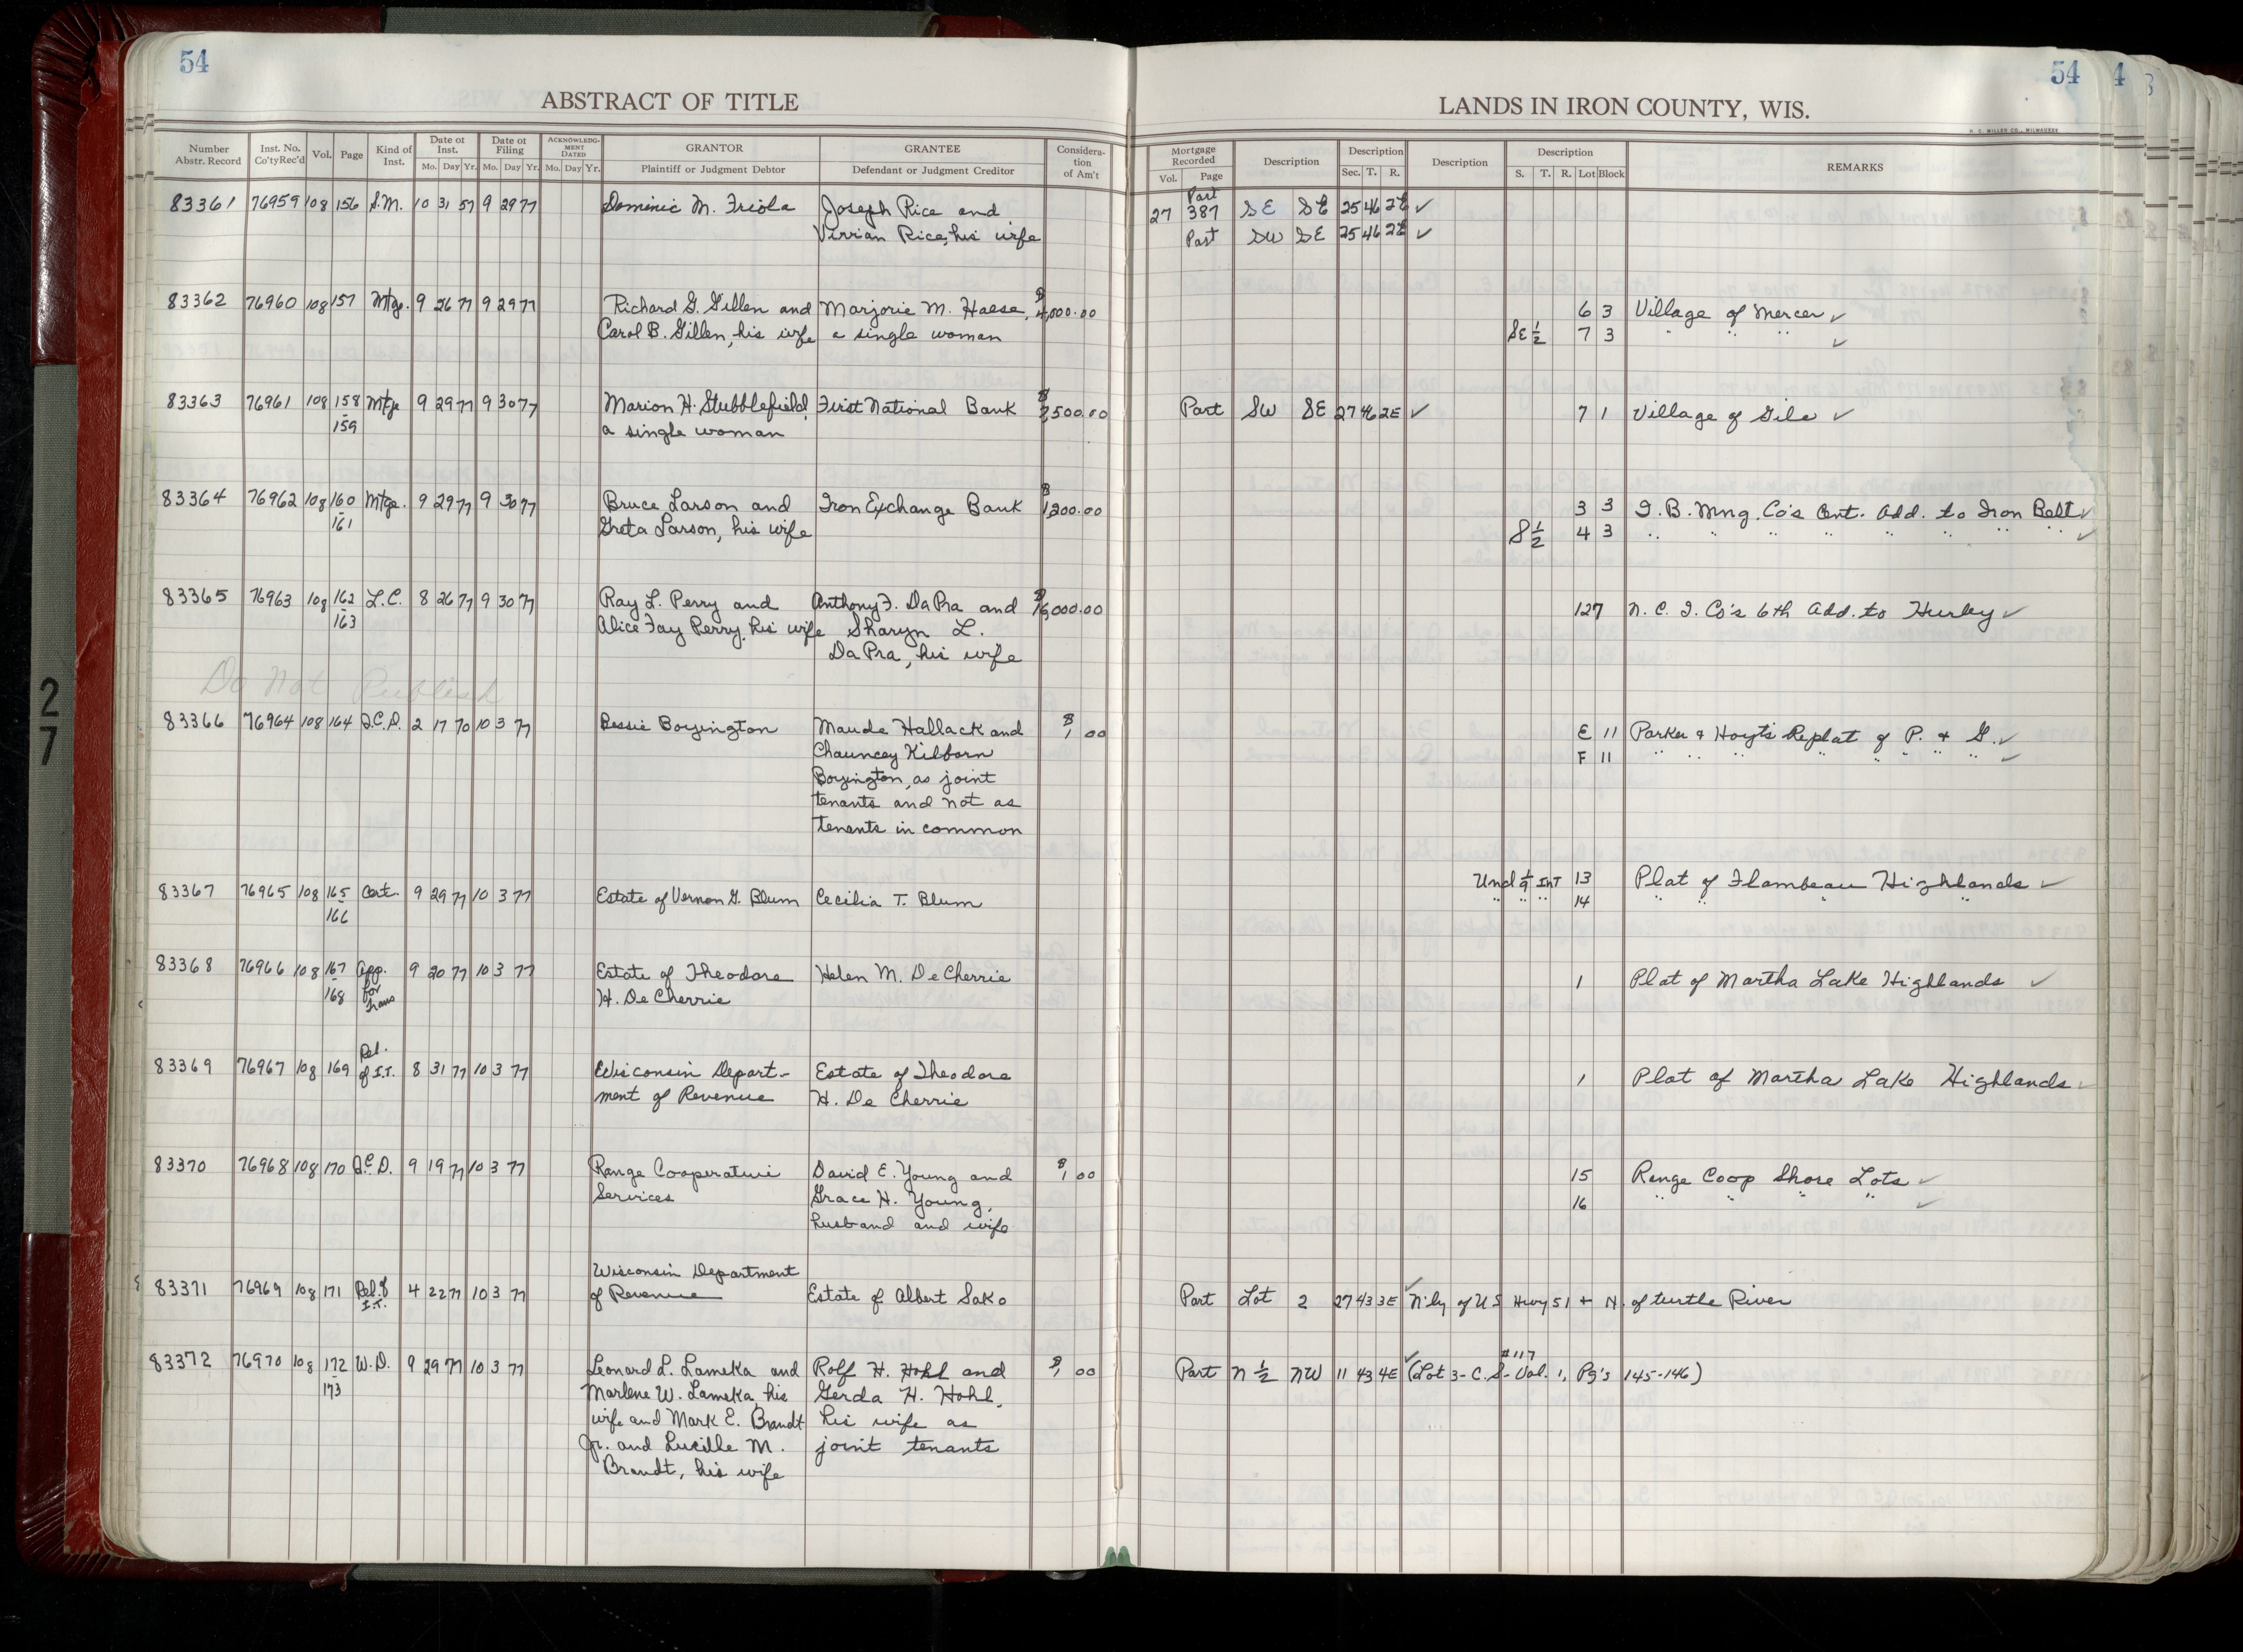 54
ABSTRACT OF TITLE
Number Abstr. Record
Inst. No. Co'ty Rec'd
Vol.
Page
Kind of Inst.
Date of Inst.
Mo. Day Yr.
Date of Filing
Mo. Day Yr.
ACKNOWLEDGMENT DATED
Mo. Day Yr.
GRANTOR
Plaintiff or Judgment Debtor
GRANTEE
Defendant or Judgment Creditor
Considera-tion of Am't
54
4
LANDS IN IRON COUNTY, WIS.
H. C. MILLER CO., MILWAUKEE
Mortgage Recorded
Vol. Page
Description
Description
Sec. T. R.
Description
Description
S. T. R. Lot Block
REMARKS
83361 76959 108 156 S.M. 10 31 57 9 29 77 Dominic M. Friola Joseph Rice and Part
27 387 SE SE 25 46 2E ✓
Virrian Rice, his wife Part SW SE 25 46 2E ✓
83362 76960 108 157 Mtge. 9 26 77 9 29 77 Richard G. Gillen and Marjorie M. Haese, $4,000.00 6 3 Village of Mercer ✓
Carol B. Gillen, his wife a single woman SE ½ 7 3 " " " ✓
83363 76961 108 158 Mtge 9 29 77 9 30 77 Marion H. Stubblefield, First National Bank $2,500.00 Part SW SE 27 46 2E ✓ 7 1 Village of Gile ✓
-
159 a single woman
83364 76962 108 160 Mtge. 9 29 77 9 30 77 Bruce Larson and Iron Exchange Bank $1,200.00 3 3 I. B. Mng. Co's Cent. Add. to Iron Belt ✓
-
161 Greta Larson, his wife S ½ 4 3 " " " " " " " " ✓
83365 76963 108 162 L.C. 8 26 77 9 30 77 Ray L. Perry and Anthony F. DaPra and $16,000.00 12 7 N. C. I. Co's 6th Add. to Hurley ✓
-
163 Alice Fay Perry, his wife Sharyn L.
DaPra, his wife
Do Not Publish
83366 76964 108 164 Q.C.D. 2 17 70 10 3 77 Bessie Boyington Maude Hallack and $1 00 E 11 Parker & Hoyt's Replat of P. & G. ✓
Chauncey Kilborn F 11 " " " " " " " " ✓
Boyington, as joint
tenants and not as
tenants in common
83367 76965 108 165 Cert. 9 29 77 10 3 77 Estate of Vernon G. Blum Cecilia T. Blum Und 1/9 INT 13 Plat of Flambeau Highlands ✓
-
166 " " " 14 " " " "
83368 76966 108 167 App. for Trans 9 20 77 10 3 77 Estate of Theodore Helen M. DeCherrie 1 Plat of Martha Lake Highlands ✓
168 H. DeCherrie
83369 76967 108 169 Rel. of I.T. 8 31 77 10 3 77 Wisconsin Depart- Estate of Theodore 1 Plat of Martha Lake Highlands ✓
ment of Revenue H. De Cherrie
83370 76968 108 170 Q.C.D. 9 19 77 10 3 77 Range Cooperative David E. Young and $1 00 15 Range Coop Shore Lots ✓
Services Grace H. Young, 16 " " " " ✓
husband and wife
Wisconsin Department
83371 76969 108 171 Rel. of I.T. 4 22 77 10 3 77 of Revenue Estate of Albert Sako Part Lot 2 27 43 3E ✓ N'ly of US Hwy 51 + N. of turtle River
83372 76970 108 172 W.D. 9 29 77 10 3 77 Leonard L. Lameka and Rolf H. Hohl and $1 00 Part N ½ NW 11 43 4E ✓ (Lot 3 - C.S. #117 - Vol. 1, Pg's 145-146)
-
173 Marlene W. Lameka, his Gerda H. Hohl,
wife and Mark E. Brandt his wife as
Jr. and Lucille M. joint tenants
Brandt, his wife
27